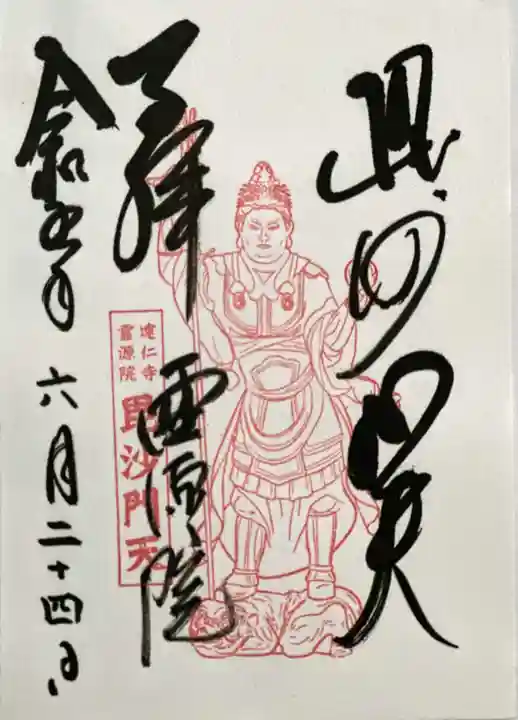 毘沙門天
奉拝
霊源院
建仁寺
霊源院
毘沙門天
令和五年
六月二十四日